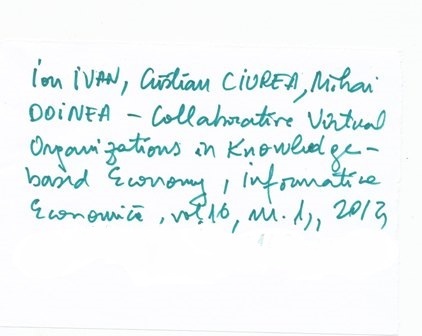 Ion IVAN, Cristian CIUREA, Mihai
DOINEA – Collaborative Virtual
Organizations in Knowledge-
based Economy, Informatica
Economică, vol. 16, nr. 1,, 2012,